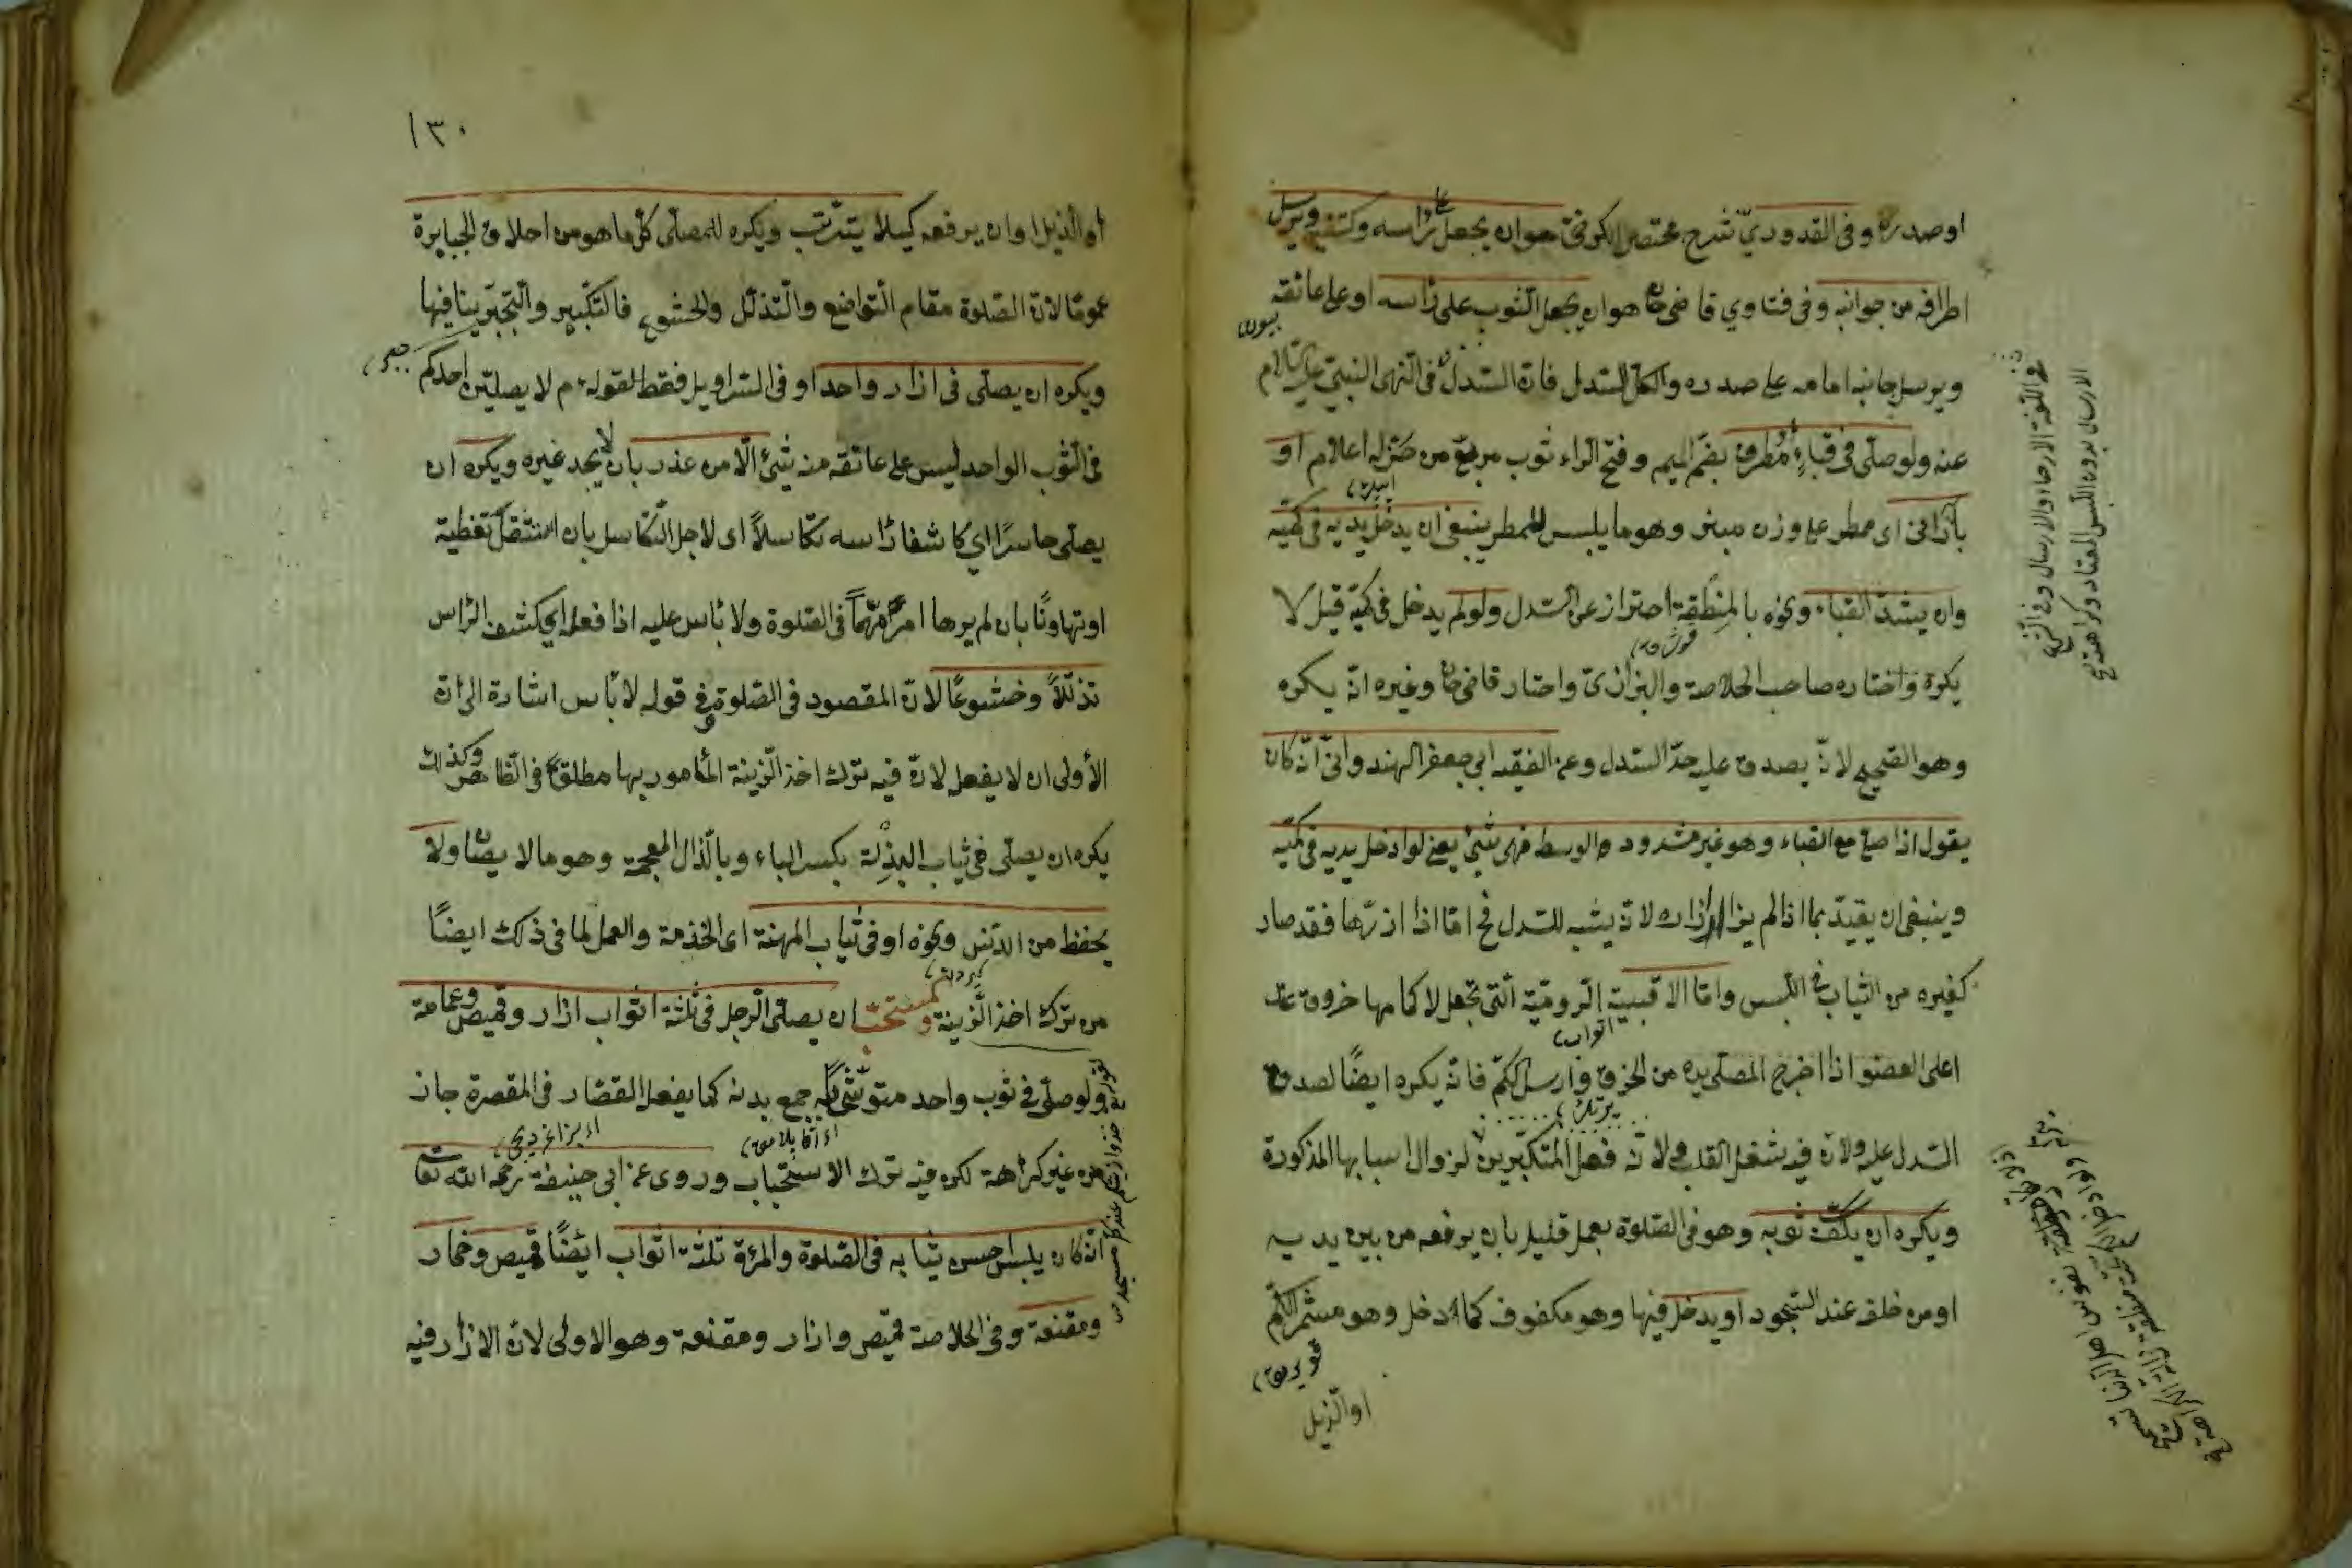 او صدره وفى القدوري شرح مختصر الكرخى هو ان يجعل على رأسه وكتفيه ويرسل
اطرافه من جوانبه وفى فتاوي قاضى خان هو ان يجعل الثوب على رأسه او على عاتقه
ويرسل جانبيه امامه على صدره والكل السدل فان السدل فى النهى النبى عليه السلام
عنه ولو صلى فى قباء مطرف بضم الميم وفتح الراء ثوب مربع من خز له اعلام او
بارانى اى ممطر على وزن منبر وهو ما يلبس للمطر ينبغى ان يدخل يديه فى كميه
وان يشد القباء ونحوه بالمنطقة احتراز عن السدل ولو لم يدخل فى كميه قيل لا
يكره واختاره صاحب الخلاصة والبزازى واختار قاضى خان وغيره انه يكره
وهو الصحيح لانه يصدق عليه حد السدل وعن الفقيه ابي جعفر الهندوانى انه كان
يقول اذا صلى مع القباء وهو غير مشدود الوسط فهو شيئ يعنى لو ادخل يديه فى كميه
وينبغى ان يقيد بما اذا لم يزر ازراره لانه يشبه السدل ح اما اذا ازرها فقد صار
كغيره من الثياب فى اللبس واما الاقبية الرومية التى تجعل لاكمامها خروق عند
اعلى العضو اذا اخرج المصلى يده من الخرق وارسل الكم فانه يكره ايضًا لصدق
السدل عليه ولانه فيه شغل القلب لانه فعل المتكبرين لزوال اسبابها المذكورة
ويكره ان يكف ثوبه وهو فى الصلوة بعمل قليل بان يرفعه من بين يديه
او من خلفه عند السجود او يدخل فيها وهو مكفوف كما اذا دخل وهو مشمر الكم
او الذيل
فى اللغة الارخاء والارسال وفى الشرع
الارسال بدون اللبس المعتاد وكراهته
١٣٠
او الذيل او ان يرفعه كيلا يتترب ويكره للمصلى كل ما هو من اخلاق الجبابرة
عمومًا لان الصلوة مقام التواضع والتذلل والخشوع فالتكبير والتجبر ينافيها
ويكره ان يصلى فى ازار واحد او فى السراويل فقط لقوله م لا يصلين احدكم
فى الثوب الواحد ليس على عاتقه منه شيئ الا من عذر بان لا يجد غيره ويكره ان
يصلى حاسرًا اي كاشفا رأسه تكاسلاً اى لاجل التكاسل بان استثقل تغطية
او تهاونًا بان لم يرها امرًا مهمًا فى الصلوة ولا بأس عليه اذا فعله اي كشف الرأس
تذللاً وخشوعًا لانه المقصود فى الصلوة وفى قوله لا بأس اشارة الى ان
الأولى ان لا يفعل لان فيه ترك اخذ الزينة المأمور بها مطلقا فى الظاهر وكذلك
يكره ان يصلى فى ثياب البذلة بكسر الباء وبالذال المعجمة وهو ما لا يصان ولا
يحفظ من الدنس ونحوه او فى ثياب المهنة اى الخدمة والعمل لما فى ذلك ايضًا
من ترك اخذ الزينة والمستحب ان يصلى الرجل فى ثلثة اثواب ازار وقميص وعمامة
ولو صلى فى ثوب واحد متوشحًا به جمع بدنه كما يفعل القصار فى المقصرة جاز
من غير كراهة لكن فيه ترك الاستحباب وروى عن ابى حنيفة رحمه الله تعالى
انه كان يلبس احسن ثيابه فى الصلوة والمرئة ثلثة اثواب ايضًا قميص وخمار
ومقنعة وفى الخلاصة قميص وازار ومقنعة وهو الاولى لان الازار فيه